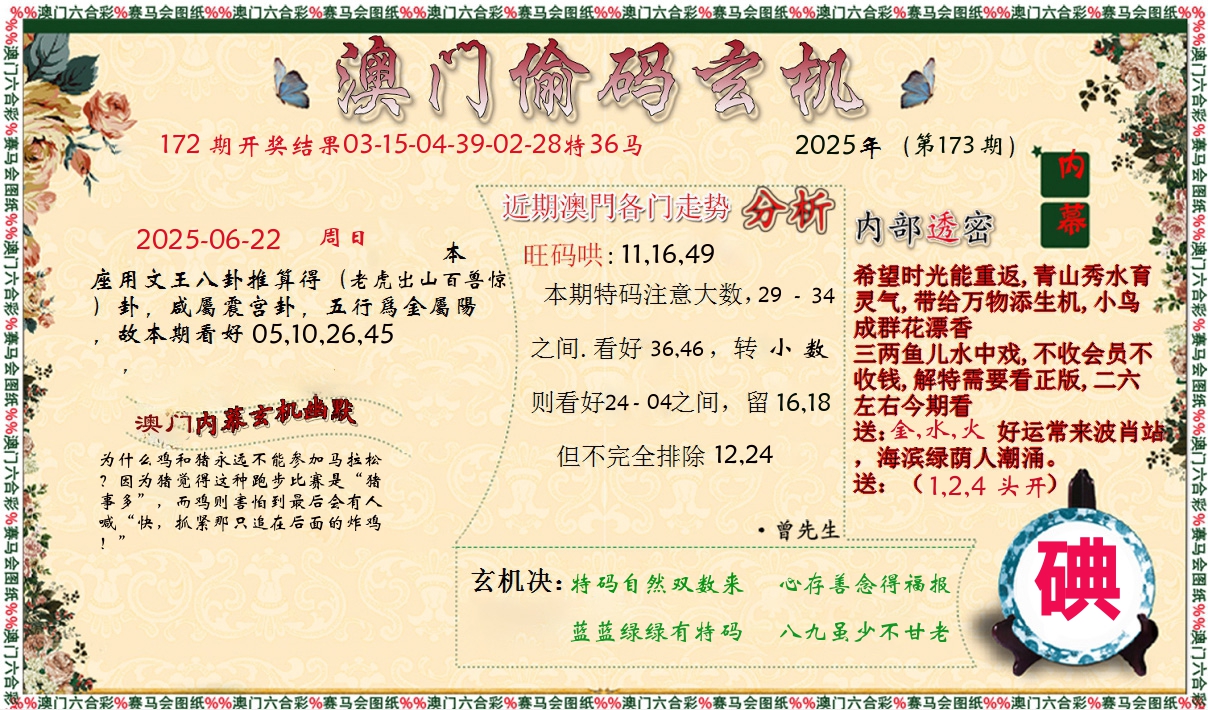 %%澳门六合彩%赛马会图纸%%澳门六合彩%赛马会图纸%%澳门六合彩%赛马会图纸%%澳门六合彩%赛马会图纸%%澳门六合彩%赛马会图纸%%澳门六合彩%赛马会图纸%%
澳门偷码玄机
172 期开奖结果03-15-04-39-02-28特36马
2025年（第173期）
内幕
2025-06-22 周日
本
座用文王八卦推算得（老虎出山百兽惊
）卦，咸屬震宫卦，五行爲金屬陽
，故本期看好 05,10,26,45
，
澳门内幕玄机幽默
为什么鸡和猪永远不能参加马拉松
？因为猪觉得这种跑步比赛是“猪
事多”，而鸡则害怕到最后会有人
喊“快，抓紧那只追在后面的炸鸡
！”
近期澳門各门走势 分析
旺码哄: 11,16,49
本期特码注意大数,29 - 34
之间.看好 36,46，转 小 数
则看好24 - 04之间，留 16,18
但不完全排除 12,24
·曾先生
内部透密
希望时光能重返,青山秀水育
灵气,带给万物添生机,小鸟
成群花漂香
三两鱼儿水中戏,不收会员不
收钱,解特需要看正版,二六
左右今期看
送:金,水,火 好运常来波肖站
，海滨绿荫人潮涌。
送：（1,2,4 头开）
玄机决: 特码自然双数来 心存善念得福报
蓝蓝绿绿有特码 八九虽少不甘老
碘
%%澳门六合彩%赛马会图纸%%澳门六合彩%赛马会图纸%%澳门六合彩%赛马会图纸%%澳门六合彩%赛马会图纸%%澳门六合彩%赛马会图纸%%澳门六合彩%赛马会图纸%%